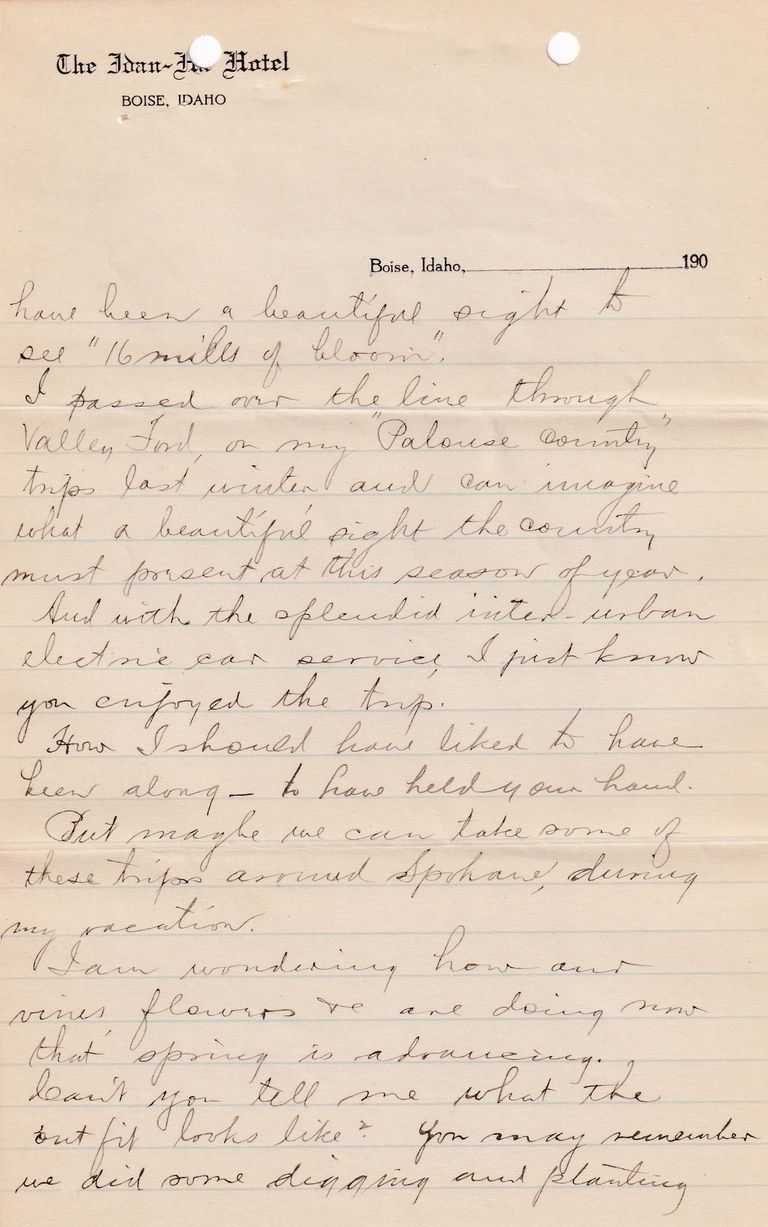 The Idan-Ha Hotel
BOISE, IDAHO
Boise, Idaho, 190
have been a beautiful sight to
see "16 miles of bloom".
I passed over the line through
Valley Ford, on my "Palouse country"
trips last winter and can imagine
what a beautiful sight the country
must present at this season of year.
And with the splendid inter-urban
electric car service, I just know
you enjoyed the trip.
How I should have liked to have
been along – to have held your hand.
But maybe we can take some of
these trips around Spokane, during
my vacation.
I am wondering how our
vines, flowers &c are doing now
that spring is advancing.
Can't you tell me what the
outfit looks like? You may remember
we did some digging and planting